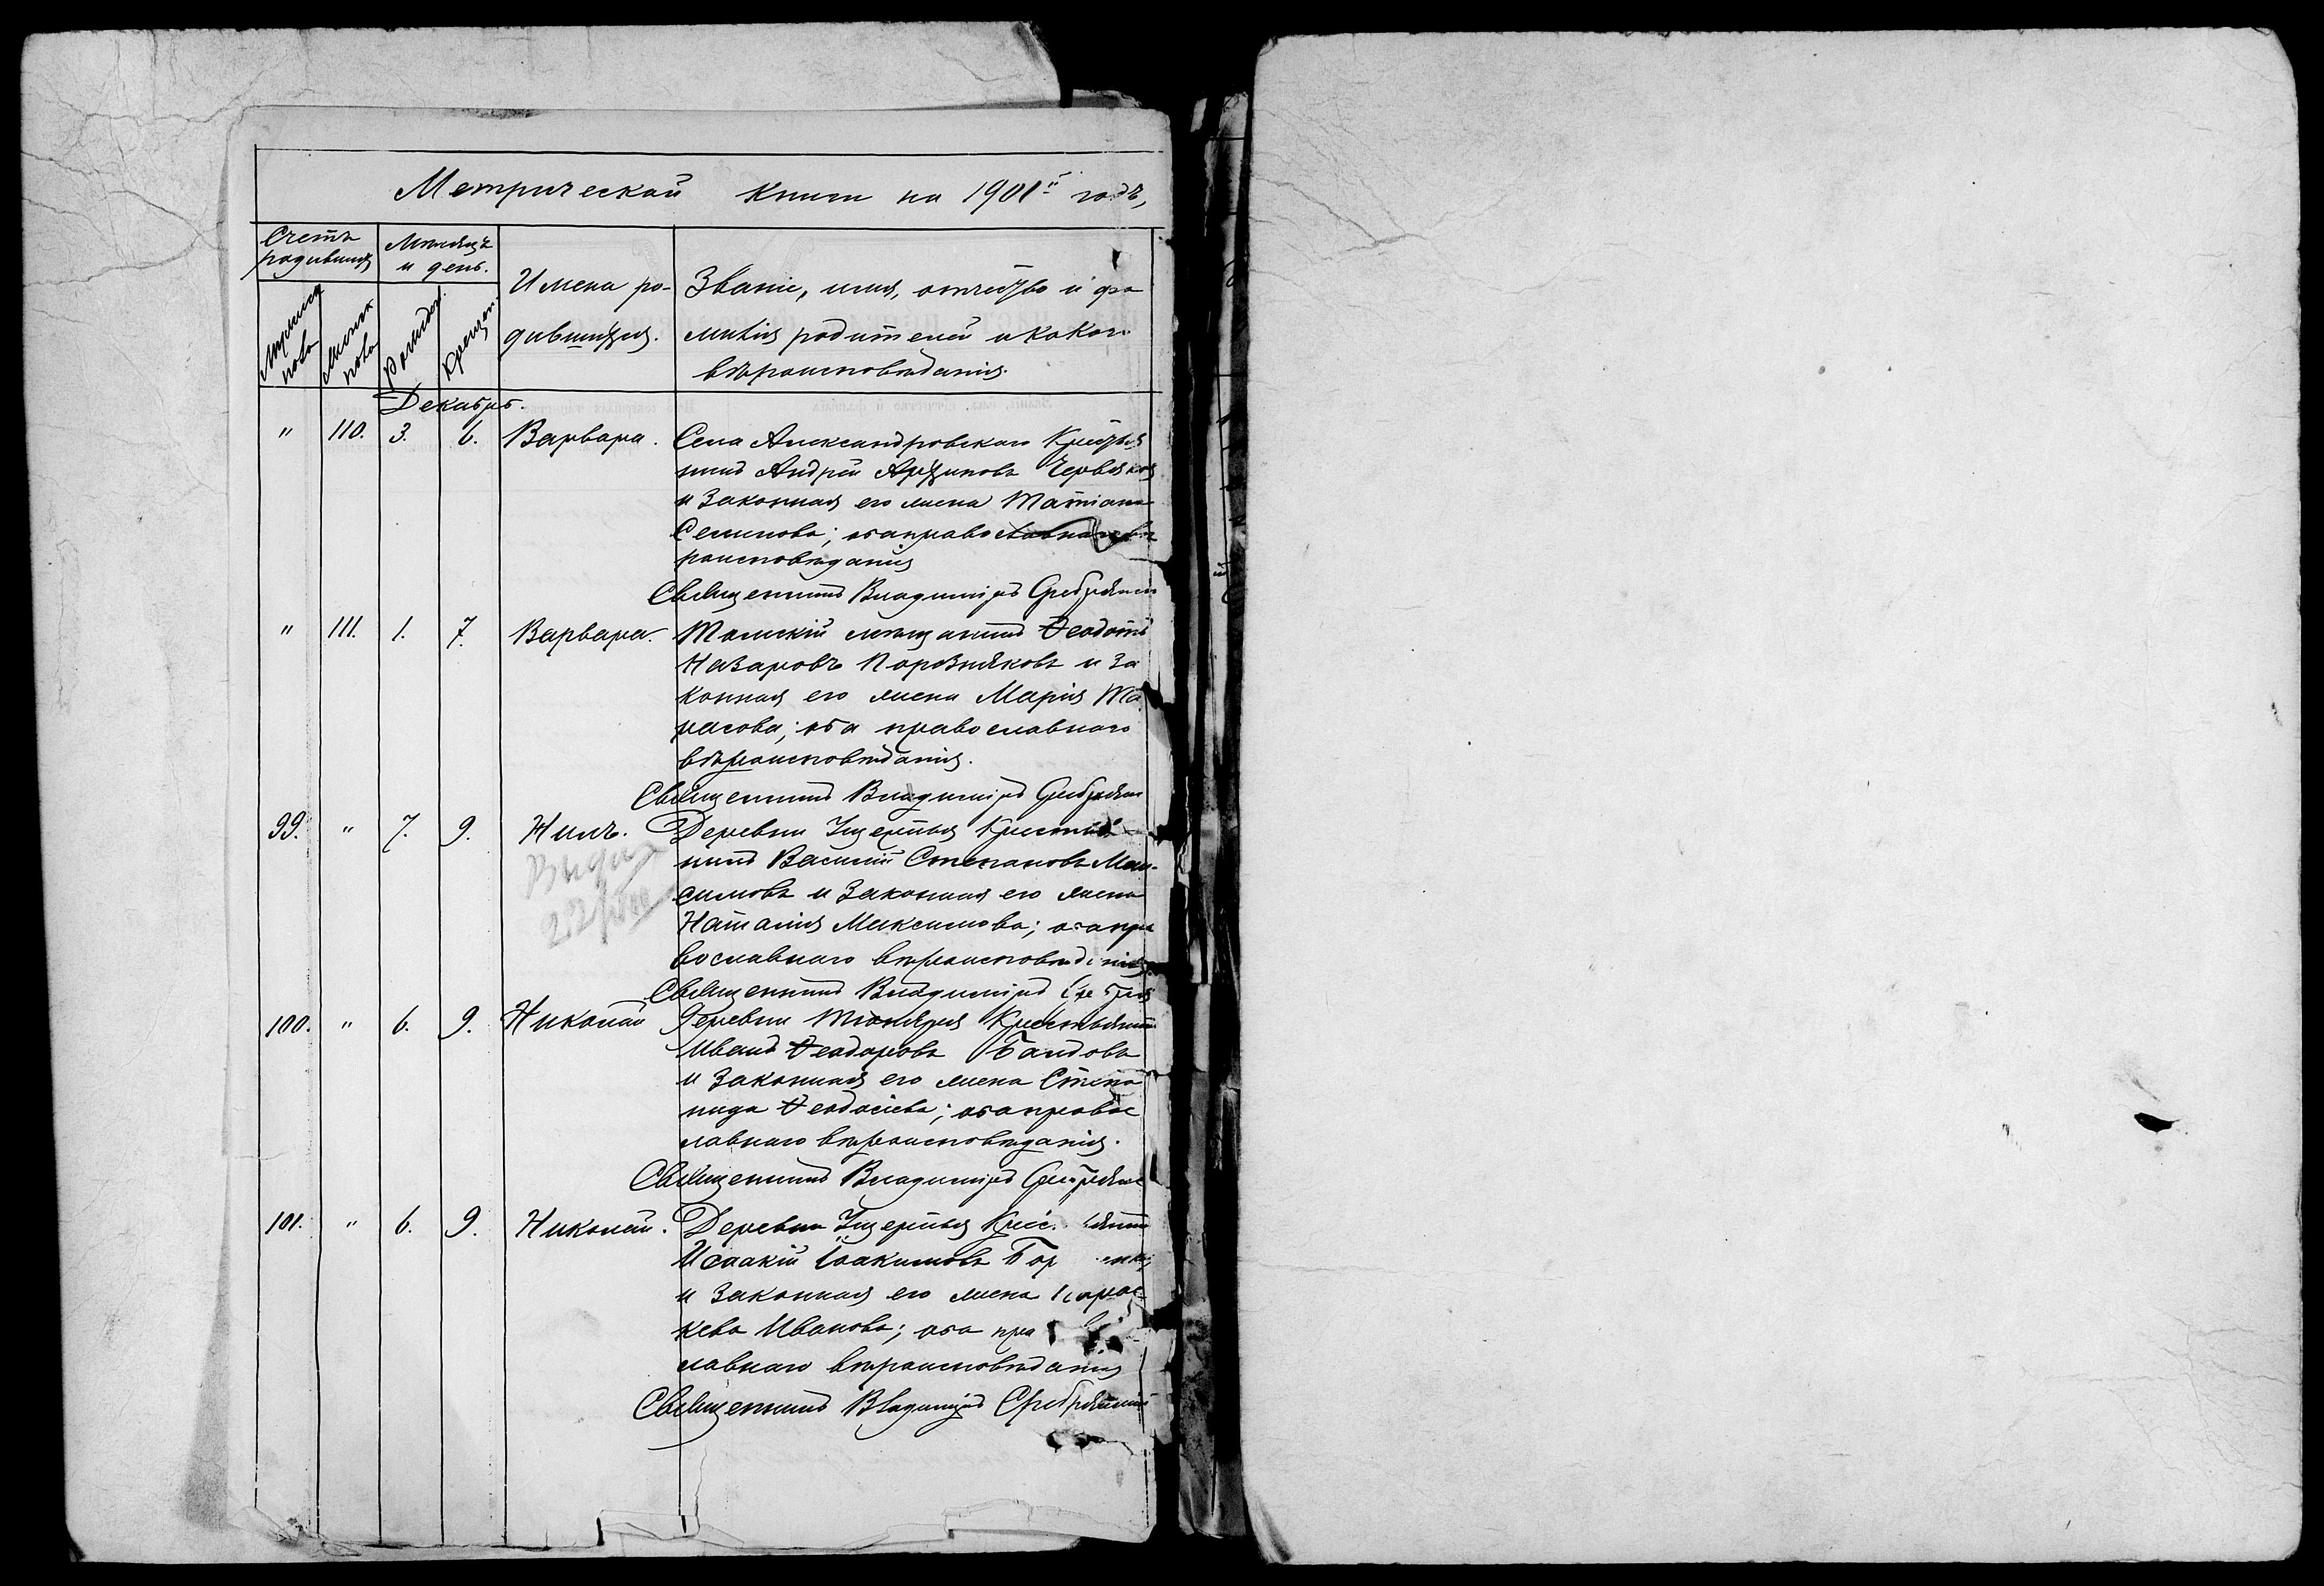 Метрической книги на 1901й годъ,
Счетъ родившихся
Мѣсяцъ и день.
Имена родившихся.
Званіе, имя, отчество и фамилія родителей и какого вѣроисповѣданія.
Мужеска пола
Женска пола
Рожден.
Крещен.
Декабрь.
" 110. 3. 6. Варвара. Села Александровскаго Крестья
нинъ Андрей Червяков
и законная его жена Татіана
Семенова; оба православнаго вѣ
роисповѣданія
Священникъ Владиміръ Сребрянск
" 111. 1. 7. Варвара. Томскій мѣщанинъ Ѳеодотъ
Назаровъ Порозняковъ и за
конная его жена Марія Та
расова; оба православнаго
вѣроисповѣданія.
Священникъ Владиміръ Сребрян
99. " 7. 9. Нилъ. Деревни Крестья
нинъ Василій Степановъ Мак
симовъ и законная его жена
Наталія Максимова; оба пра
вославнаго вѣроисповѣданія.
Священникъ Владиміръ Сребрян
100. " 6. 9. Николай Деревни Крестьянинъ
Иванъ Ѳеодоровъ Баидовъ
и законная его жена Степа
нида Ѳеодосіева; оба правос
лавнаго вѣроисповѣданія.
Священникъ Владиміръ Сребрянс
101. " 6. 9. Николай. Деревни Крес янинъ
Исаакій Іоакимовъ Бор
и законная его жена Парас
кева Иванова; оба пра
лавнаго вѣроисповѣданія
Священникъ Владиміръ Сребрянскій